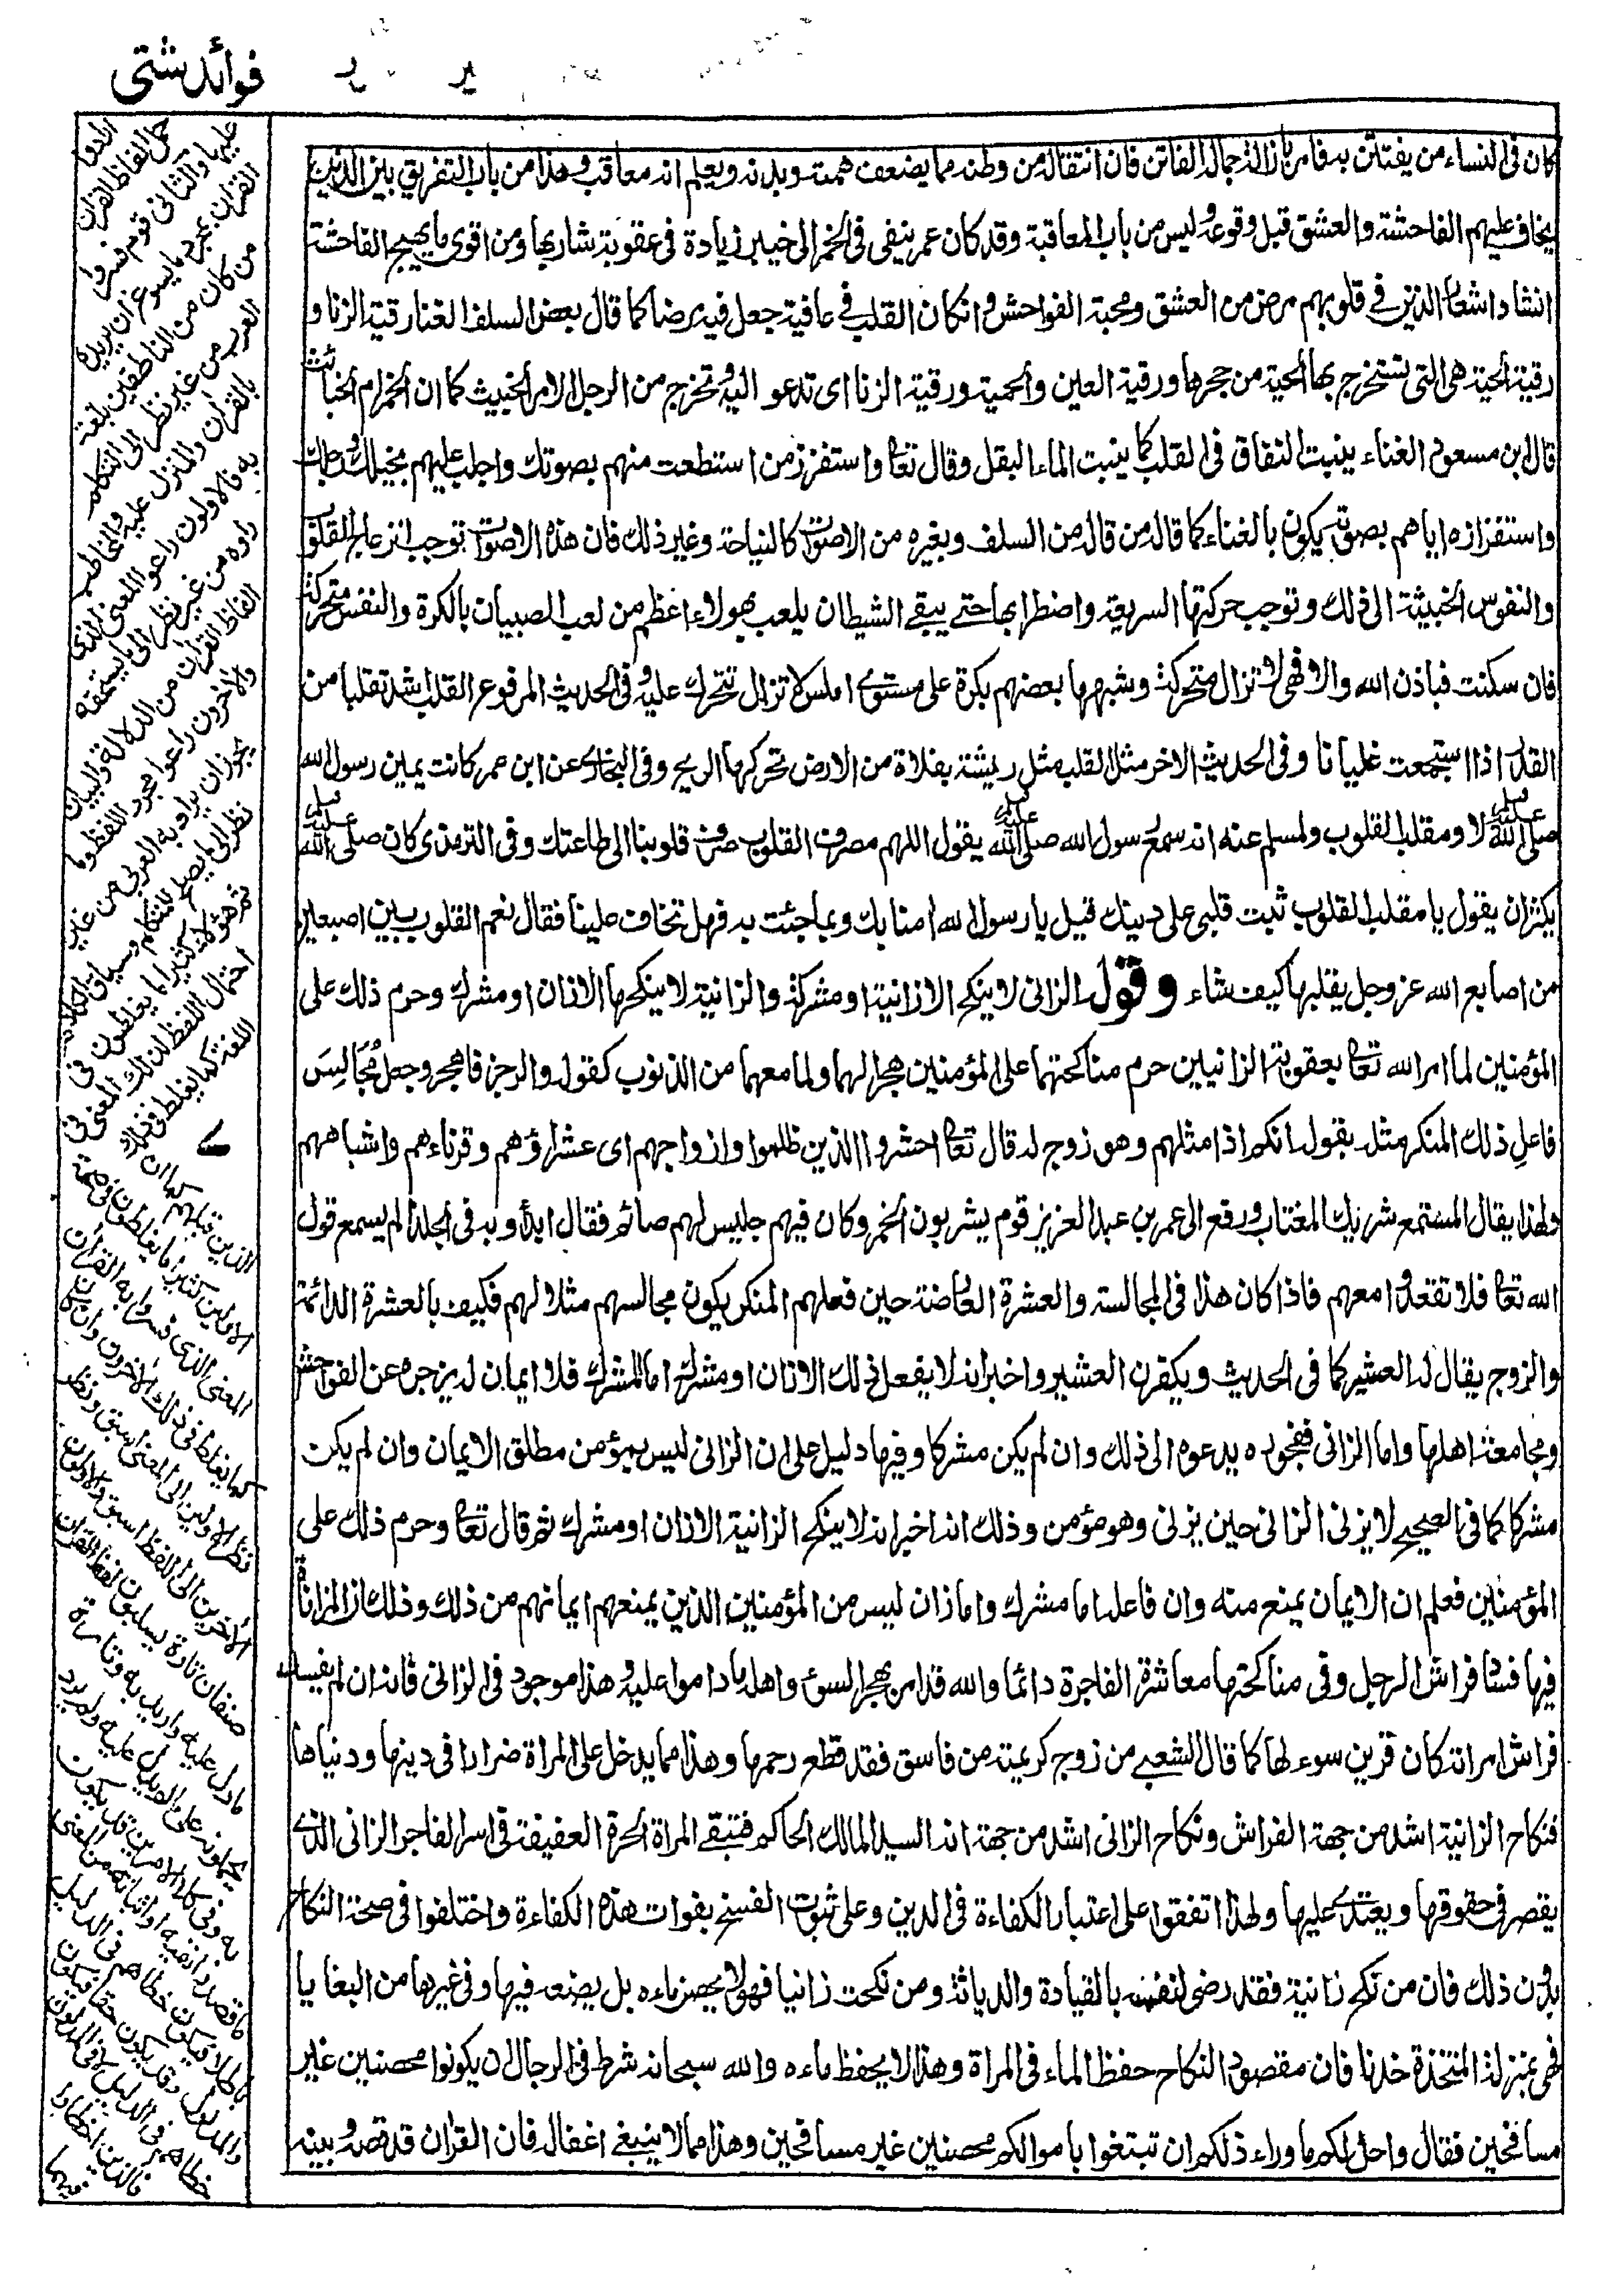 فوائد شتى
كان في النساء من يفتتن به فامر بازالة جماله الفاتن فان انتقاله من وطنه مما يضعف همته وبدنه ويعلم انه معاقب وهذا من باب التفريق بين الذين
يخاف عليهم الفاحشة والعشق قبل وقوعه وليس من باب المعاقبة وقد كان عمر ينفي في الخمر الى خيبر زيادة في عقوبة شاربها ومن اقوى ما يهيج الفاحشة
انشاد اشعار الذين في قلوبهم مرض من العشق ومحبة الفواحش وان كان القلب في عافية جعل فيه مرضا كما قال بعض السلف الغنا رقية الزنا و
رقية الحية هي التي تستخرج بها الحية من جحرها ورقية العين والحمية ورقية الزنا اى تدعو اليه وتخرج من الرجل الامر الخبيث كما ان الخمر ام الخبائث
قال ابن مسعود الغناء ينبت النفاق في القلب كما ينبت الماء البقل وقال تعا واستفزز من استطعت منهم بصوتك واجلب عليهم بخيلك ورجلك
واستفزازه اياهم بصوته يكون بالغناء كما قال من قال من السلف وبغيره من الاصوات كالنياحة وغير ذلك فان هذه الاصوات توجب انزعاج القلوب
والنفوس الخبيثة الى ذلك وتوجب حركتها السريعة واضطرابها حتى يبقى الشيطان يلعب بهولاء اعظم من لعب الصبيان بالكرة والنفس متحركة
فان سكنت فباذن الله والا فهي لا تزال متحركة وشبهها بعضهم بكرة على مستوى املس لا تزال تتحرك عليه وفي الحديث المرفوع القلب اشد تقلبا من
القدر اذا استجمعت غليانا وفي الحديث الاخر مثل القلب مثل ريشة بفلاة من الارض تحركها الريح وفي البخارى عن ابن عمر كانت يمين رسول الله
صلى الله عليه وسلم لا ومقلب القلوب ولمسلم عنه انه سمع رسول الله صلى الله عليه وسلم يقول اللهم مصرف القلوب صرف قلوبنا الى طاعتك وفي الترمذى كان صلى الله عليه وسلم
يكثر ان يقول يا مقلب القلوب ثبت قلبي على دينك قيل يا رسول الله امنا بك وبما جئت به فهل تخاف علينا فقال نعم القلوب بين اصبعين
من اصابع الله عز وجل يقلبها كيف شاء وقوله الزاني لا ينكح الا زانية او مشركة والزانية لا ينكحها الا زان او مشرك وحرم ذلك على
المؤمنين لما امر الله تعا بعقوبة الزانيين حرم مناكحتهما على المؤمنين هجرا لهما ولما معهما من الذنوب كقوله والرجز فاهجر وجعل مُجَالِسَ
فاعلِ ذلك المنكر مثله بقوله انكم اذا مثلهم وهو زوج له قال تعا احشروا الذين ظلموا وازواجهم اى عشراؤهم وقرناءهم واشباههم
ولهذا يقال المستمع شريك المغتاب ورفع الى عمر بن عبد العزيز قوم يشربون الخمر وكان فيهم جليس لهم صائم فقال ابدؤا به في الجلد الم يسمع قول
الله تعا فلا تقعدوا معهم فاذا كان هذا في المجالسة والعشرة العارضة حين فعلهم المنكر يكون مجالسهم مثلا لهم فكيف بالعشرة الدائمة
والزوج يقال له العشير كما في الحديث ويكفرن العشير واخبر انه لا يفعل ذلك الا زان او مشرك اما المشرك فلا ايمان له يزجره عن الفواحش
ومجامعة اهلها واما الزاني ففجوره يدعوه الى ذلك وان لم يكن مشركا وفيها دليل على ان الزاني ليس بمؤمن مطلق الايمان وان لم يكن
مشركا كما في الصحيح لا يزني الزاني حين يزني وهو مؤمن وذلك انه اخبر انه لا ينكح الزانية الا زان او مشرك ثم قال تعا وحرم ذلك على
المؤمنين فعلم ان الايمان يمنع منه وان فاعله اما مشرك واما زان ليس من المؤمنين الذين يمنعهم ايمانهم من ذلك وذلك ان المزاناة
فيها فساد فراش الرجل وفي مناكحتها معاشرة الفاجرة دائما والله قد امر بهجر السوء واهله ما داموا عليه وهذا موجود في الزاني فانه ان لم يفسد
فراش امراته كان قرين سوء لها كما قال الشعبي من زوج كريمته من فاسق فقد قطع رحمها وهذا مما يدخل على المراة ضرارا في دينها ودنياها
فنكاح الزانية اشد من جهة الفراش ونكاح الزاني اشد من جهة انه السيد المالك الحاكم فتبقى المراة الحرة العفيفة في اسر الفاجر الزاني الذى
يقصر في حقوقها ويعتدى عليها ولهذا اتفقوا على اعتبار الكفاءة في الدين وعلى ثبوت الفسخ بفوات هذه الكفاءة واختلفوا في صحة النكاح
بدون ذلك فان من نكح زانية فقد رضى لنفسه بالقيادة والدياثة ومن نكحت زانيا فهو لا يحصن ماءه بل يضعه فيها وفي غيرها من البغايا
فهي بمنزلة المتخذة خدنا فان مقصود النكاح حفظ الماء في المراة وهذا لا يحفظ ماءه والله سبحانه شرط في الرجال ان يكونوا محصنين غير
مسافحين فقال واحل لكم ما وراء ذلكم ان تبتغوا باموالكم محصنين غير مسافحين وهذا مما لا ينبغي اغفاله فان القران قد قصه وبينه
حمل الفاظ القران
عليها والثاني قوم فسروا
القران بمجرد ما يسوغ ان يريده
من كان من الناطقين بلغة
العرب من غير نظر الى المتكلم
بالقران والمنزل عليه والمخاطب
به فالاولون راعوا المعنى الذى
راوه من غير نظر الى ما يستحقه
الفاظ القران من الدلالة والبيان
والاخرون راعوا مجرد اللفظ وما
يجوز ان يراد به العربي من غير
نظر الى ما يصلح للمتكلم وسياق الكلام
ثم هؤلاء كثيرا ما يغلطون في
احتمال اللفظ لذلك المعنى في
اللغة كما يغلط في ذلك
الذين قبلهم كما ان
الاولين كثيرا ما يغلطون في صحة
المعنى الذى فسروا به القران
كما يغلط في ذلك الاخرون وان كان
نظر الاولين الى المعنى اسبق ونظر
الاخرين الى اللفظ اسبق والاولون
صنفان تارة يسلبون لفظ القران
ما دل عليه واريد به وتارة
يحملونه على ما لم يدل عليه ولم يرد
به وفي كلا الامرين قد يكون
ما قصدوا نفيه او اثباته من المعنى
باطلا فيكون خطاهم في الدليل
والمدلول وقد يكون حقا فيكون
خطاهم في الدليل لا في المدلول
فالذين اخطاوا
فيهما